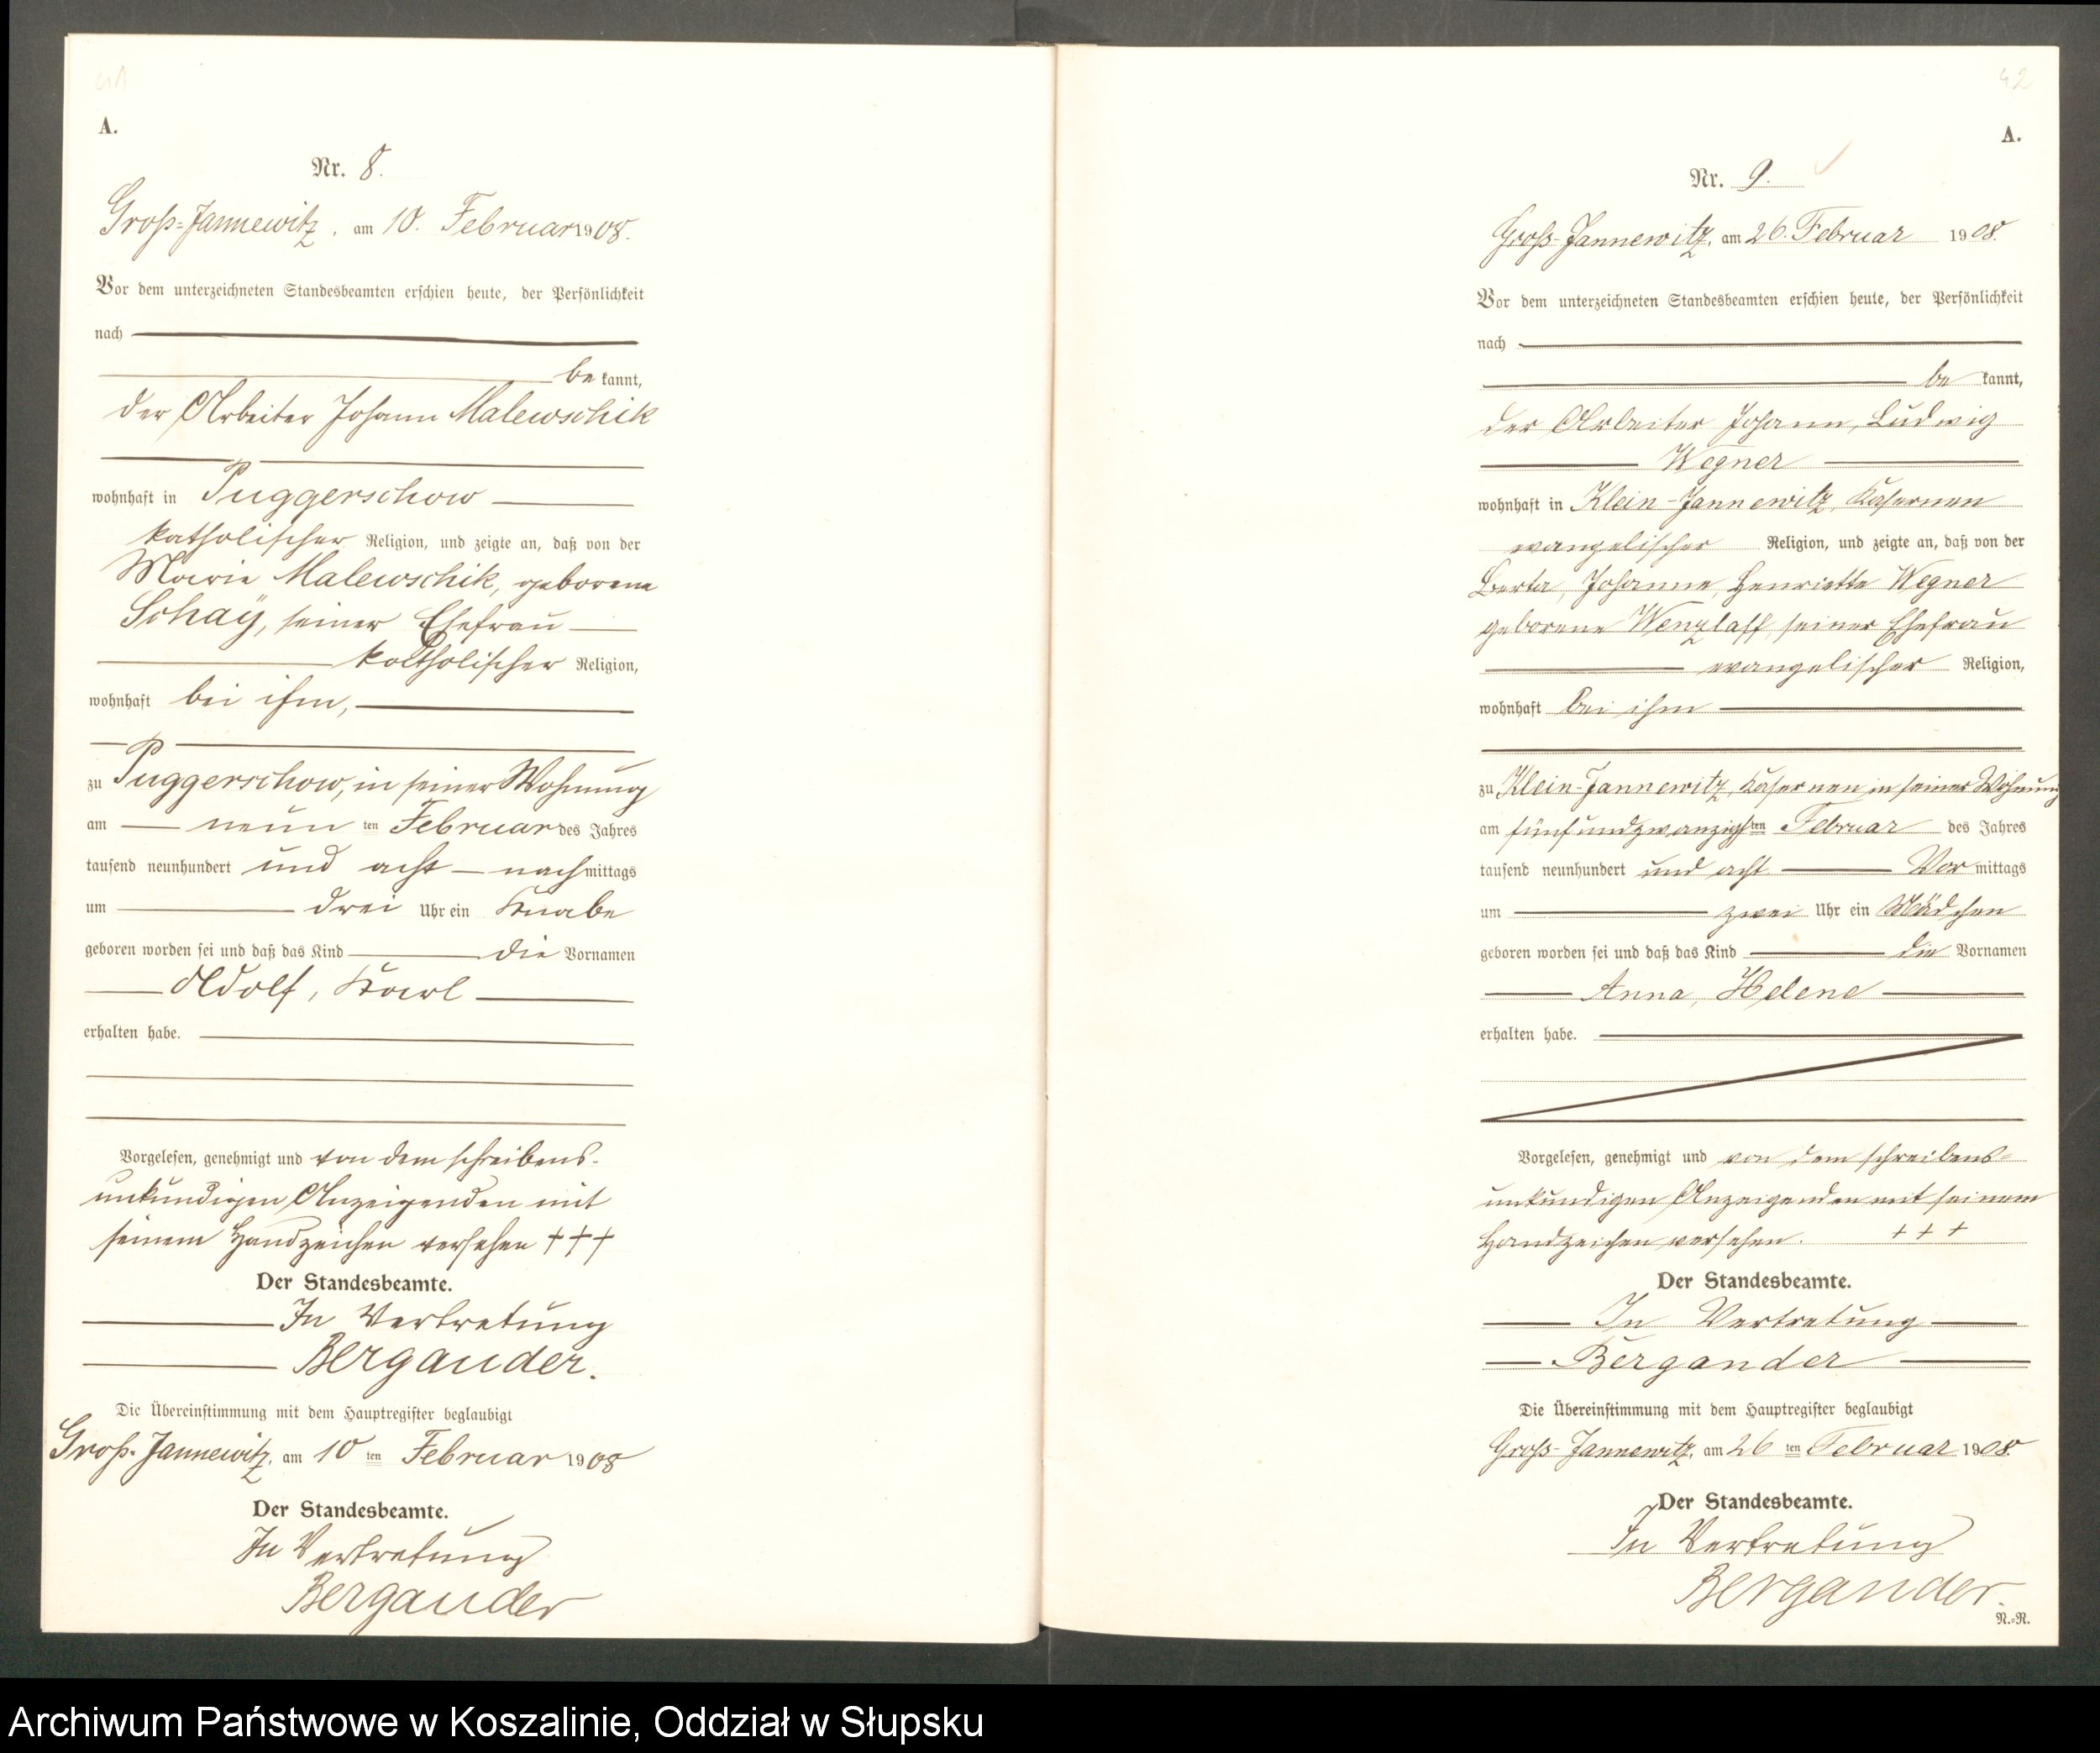 41
A.
Nr. 8.
Groß-Jannewitz, am 10. Februar 1908.
Vor dem unterzeichneten Standesbeamten erschien heute, der Persönlichkeit
nach
bekannt,
der Arbeiter Johann Malewschik
wohnhaft in Puggerschow
katholischer Religion, und zeigte an, daß von der
Marie Malewschik, geborene
Schaÿ, seiner Ehefrau
katholischer Religion,
wohnhaft bei ihm,
zu Puggerschow, in seiner Wohnung
am neun ten Februar des Jahres
tausend neunhundert und acht nachmittags
um drei Uhr ein Knabe
geboren worden sei und daß das Kind die Vornamen
Adolf, Karl
erhalten habe.
Vorgelesen, genehmigt und von dem schreibens-
unkundigen Anzeigenden mit
seinem Handzeichen versehen +++
Der Standesbeamte.
In Vertretung
Bergander.
Die Übereinstimmung mit dem Hauptregister beglaubigt
Groß-Jannewitz, am 10 ten Februar 1908
Der Standesbeamte.
In Vertretung
Bergander
42
A.
Nr. 9.
Groß-Jannewitz, am 26. Februar 1908.
Vor dem unterzeichneten Standesbeamten erschien heute, der Persönlichkeit
nach
bekannt,
der Arbeiter Johann, Ludwig
Wegner
wohnhaft in Klein-Jannewitz, Kasernen
evangelischer Religion, und zeigte an, daß von der
Berta, Johanne, Henriette Wegner
geborene Wenzlaff, seiner Ehefrau
evangelischer Religion,
wohnhaft bei ihm
zu Klein-Jannewitz, Kasernen in seiner Wohnung
am fünfundzwanzigsten Februar des Jahres
tausend neunhundert und acht Vormittags
um zwei Uhr ein Mädchen
geboren worden sei und daß das Kind die Vornamen
Anna, Helene
erhalten habe.
Vorgelesen, genehmigt und von dem schreibens-
unkundigen Anzeigenden mit seinem
Handzeichen versehen. +++
Der Standesbeamte.
In Vertretung
Bergander
Die Übereinstimmung mit dem Hauptregister beglaubigt
Groß-Jannewitz, am 26 ten Februar 1908.
Der Standesbeamte.
In Vertretung
Bergander.
N.-R.
Archiwum Państwowe w Koszalinie, Oddział w Słupsku